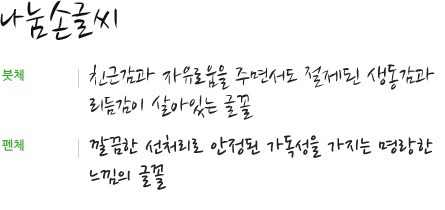 나눔손글씨
붓체 친근감과 자유로움을 주면서도 절제된 생동감과
리듬감이 살아있는 글꼴
펜체 깔끔한 선처리로 안정된 가독성을 가지는 명랑한
느낌의 글꼴